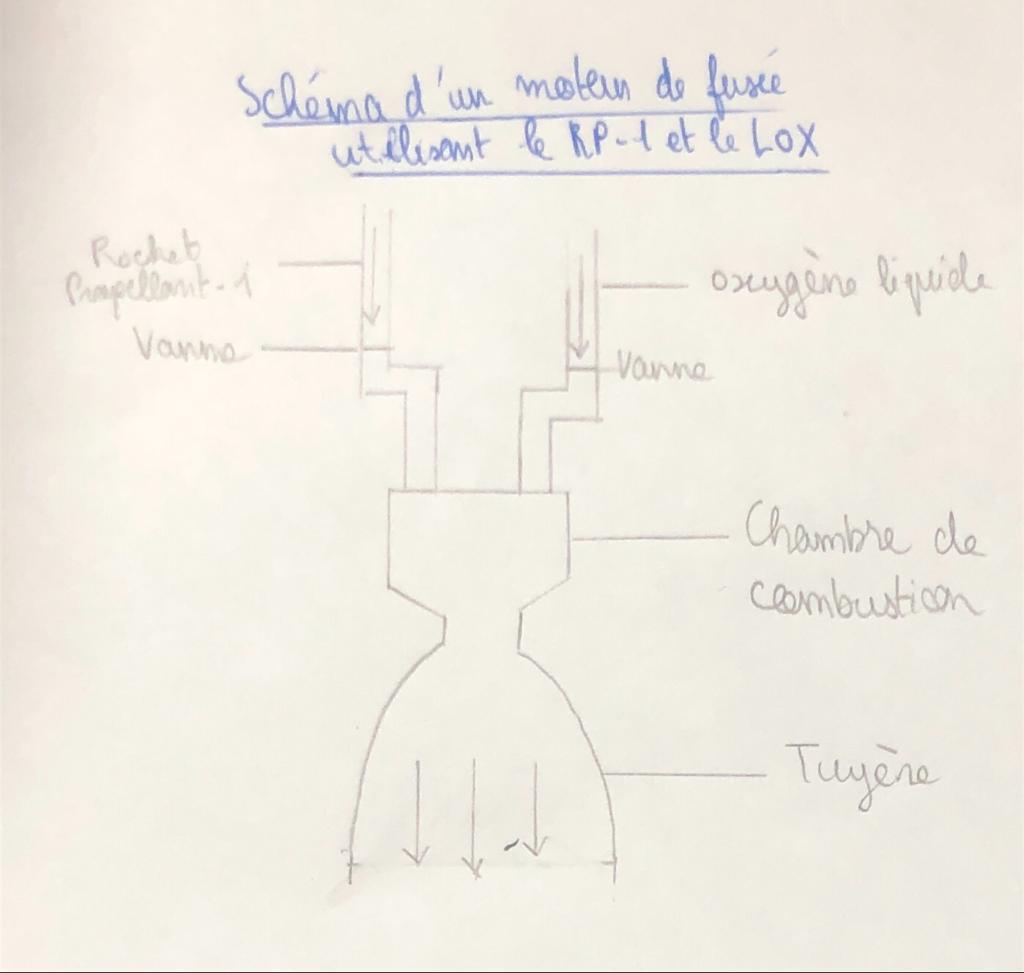 Schéma d'un moteur de fusée
utilisant le RP-1 et le LOX
Rocket
Propellant-1
oxygène liquide
Vanne
Vanne
Chambre de
combustion
Tuyère